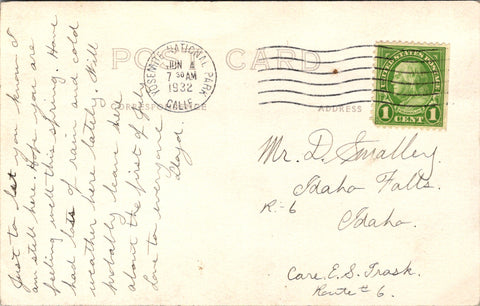 POST CARD
CORRESPONDENCE
ADDRESS
YOSEMITE NATIONAL PARK
JUN 4
7 30 AM
1932
CALIF.
UNITED STATES POSTAGE
1 CENT 1
Just to let you know I
am still here. Hope you are
feeling well this spring. Have
had lots of rain and cold
weather here lately. Will
probably leave here
about the first of July
Love to everyone
Lloyd.
Mr. D. Smalley.
Idaho Falls.
R.-6
Idaho.
Care. E. S. Trask.
Route # 6.